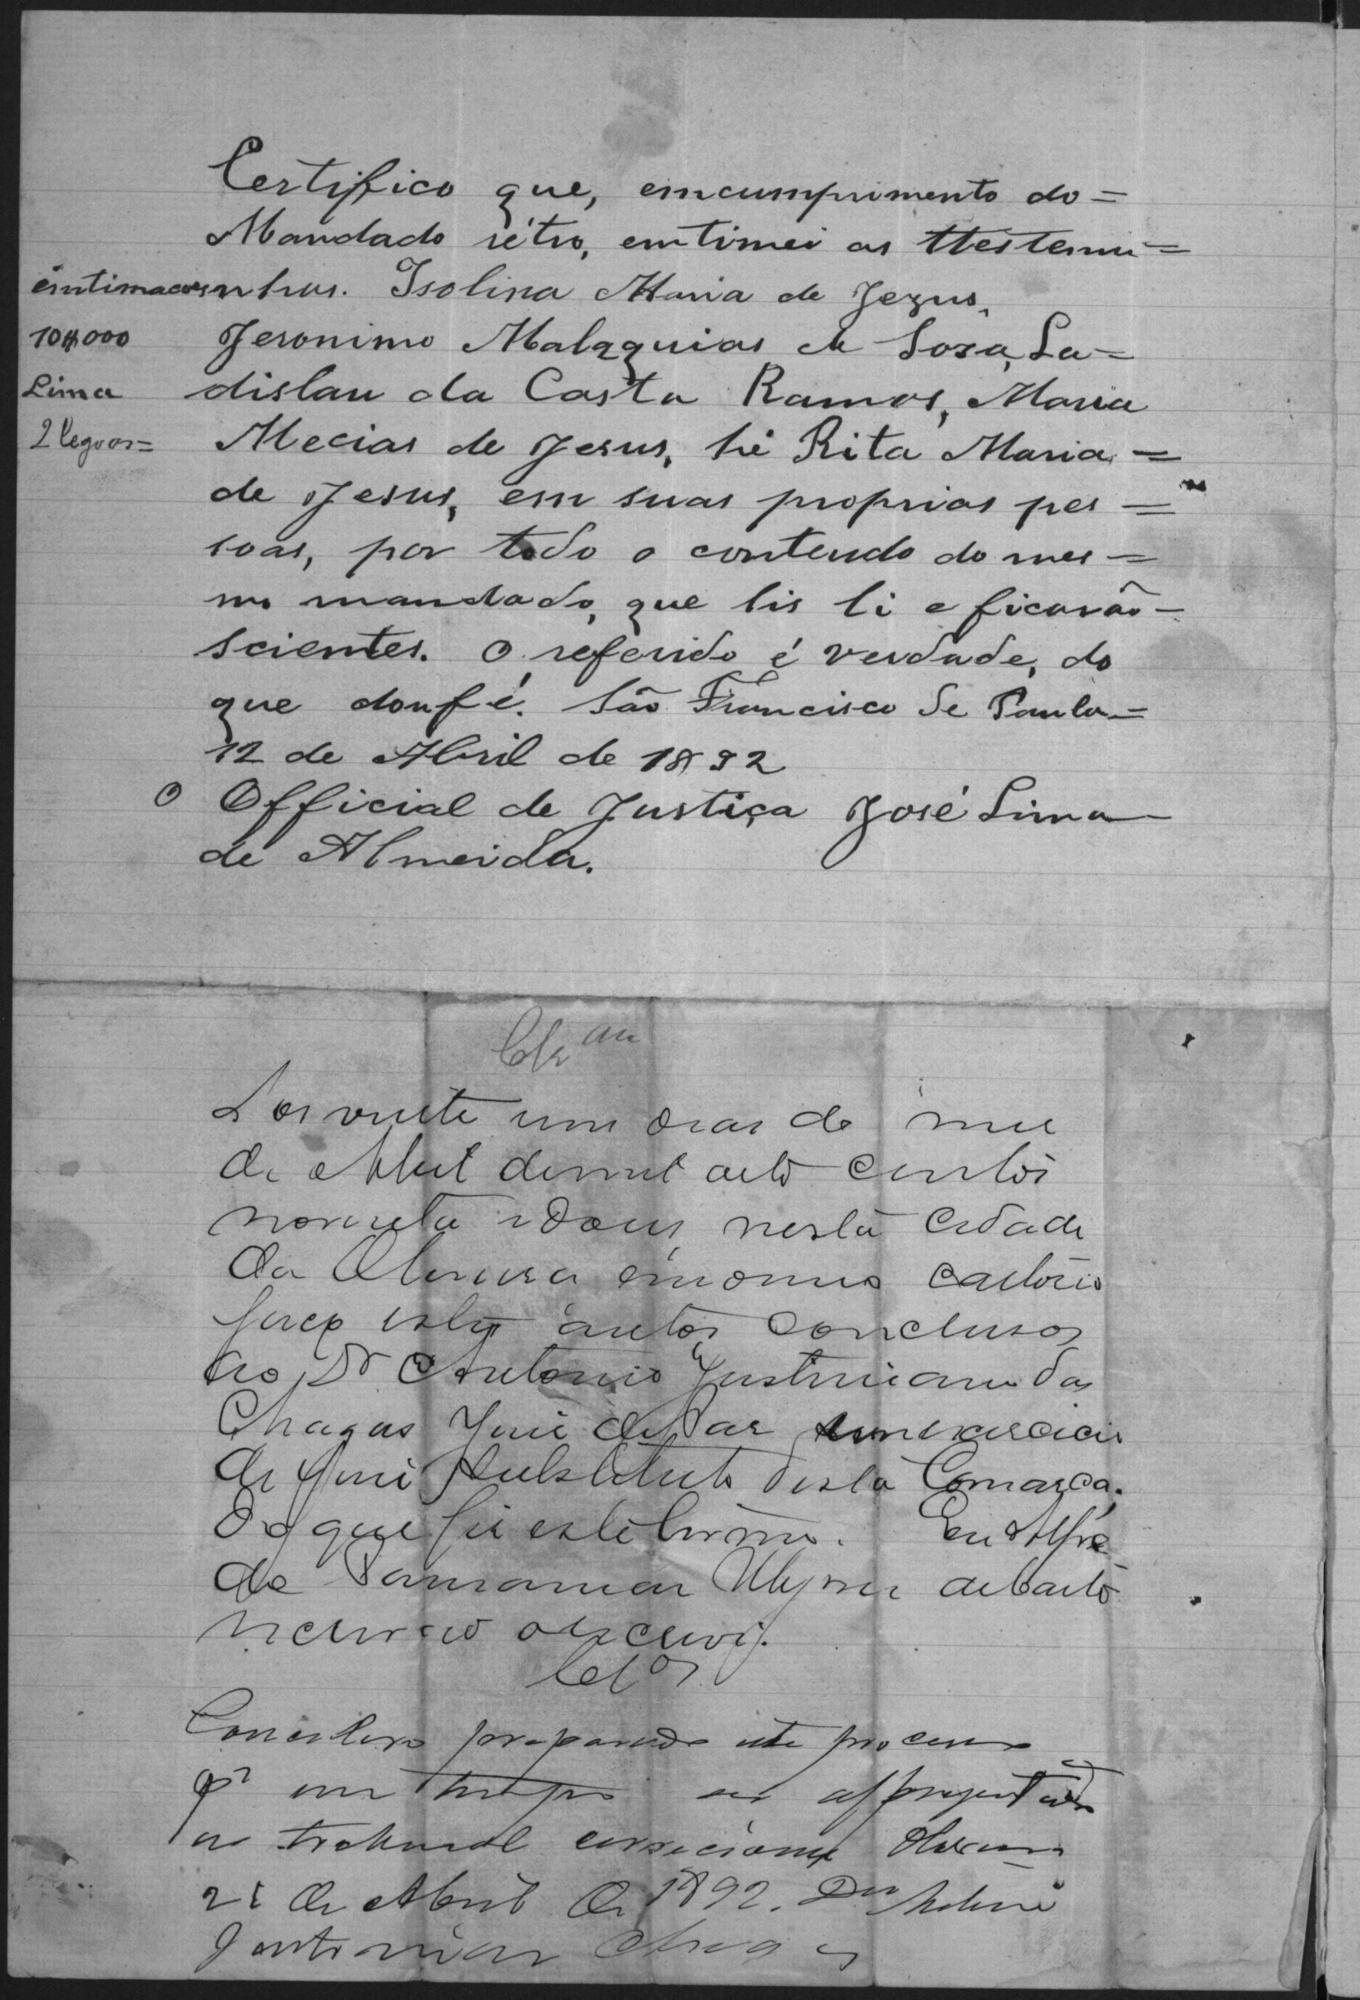 Certifico que, emcumprimento do=
Mandado rétro, emtimei as ttestemu=
eintimacões nhas. Isolina Maria de Jezus,
10$000 Jeronimo Malaquias de Soza, La=
Lima dislau da Costa Ramos, Maria
2 legoas= Mecias de Jesus, hé Rita Maria=
de Jesus, em suas proprias pes=
soas, por todo o conteudo do mes=
mo mandado, que lis li e ficarão-
scientes. O referido é verdade, do
que douf é. São Francisco de Paula=
12 de Abril de 1892
O Official de Justiça José Lima
de Almeida.
Clsam
Aos vinte um dias do mez
de Abril de mil oito centos
noventa e dous, nesta cidade
da Oliveira em o meu cartorio
faço estes autos conclusos
ao Dr Antonio Justiniano das
Chagas Juiz de Paz em exercicio
de Juiz Substituto desta Comarca.
Do que fiz este termo. Eu Alfre
do
escrivão o escrevi.
Clos
Considero preparado este processo
pa em tempo ser apresentado
ao tribunal correcional Oliveira
21 de Abril de 1892. Antonio
Justiniano Chagas